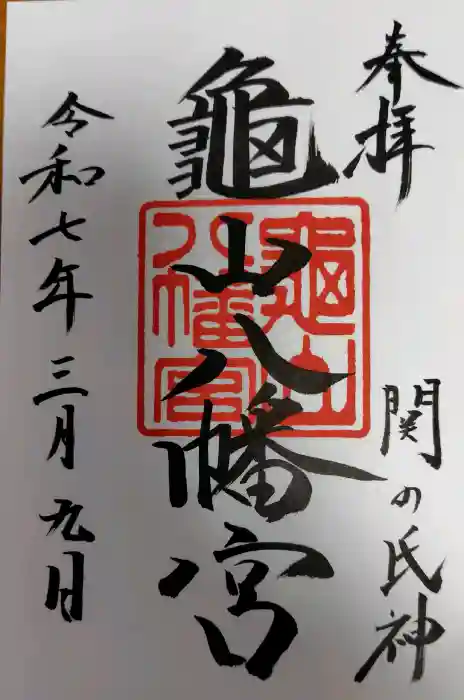 奉拝
関の氏神
龜山八幡宮
龜山八幡宮
令和七年三月九日